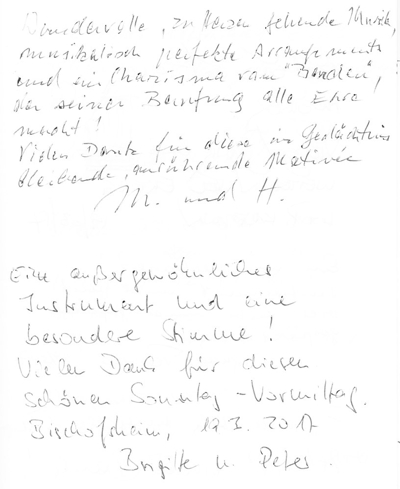 Wundervolle, zu Herzen gehende Musik,
musikalisch perfekte Arrangements
und ein Charisma vom "Barden",
der seiner Berufung alle Ehre
macht!
Vielen Dank für diese in Gedächtnis
bleibende, anrührende Matinée
M. und H.
Eine außergewöhnliches
Instrument und eine
besondere Stimme!
Vielen Dank für diesen
schönen Sonntag-Vormittag.
Bischofsheim, 19.3.2017
Brigitte u. Peter